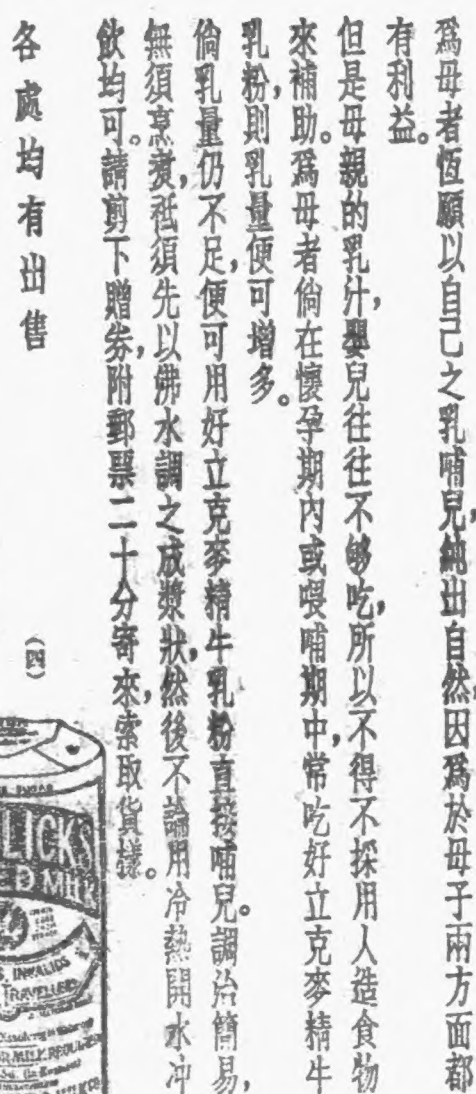 爲母者恆願以自己之乳哺兒,純出自然因爲於母子兩方面都
有利益。
但是母親的乳汁,嬰兒往往不够吃,所以不得不採用人造食物
來補助。爲母者倘在懷孕期內或喂哺期中,常吃好立克麥精牛
乳粉,則乳量便可增多。
倘乳量仍不足,便可用好立克麥精牛乳粉直接哺兒。調治簡易,
無須烹煑,祗須先以沸水調之成漿狀,然後不論用冷熱開水冲
飲均可。請剪下贈券,附郵票二十分寄來,索取貨樣。
各處均有出售
(四)
LICKS
D MILK
INVALIDS
TRAVELLERS